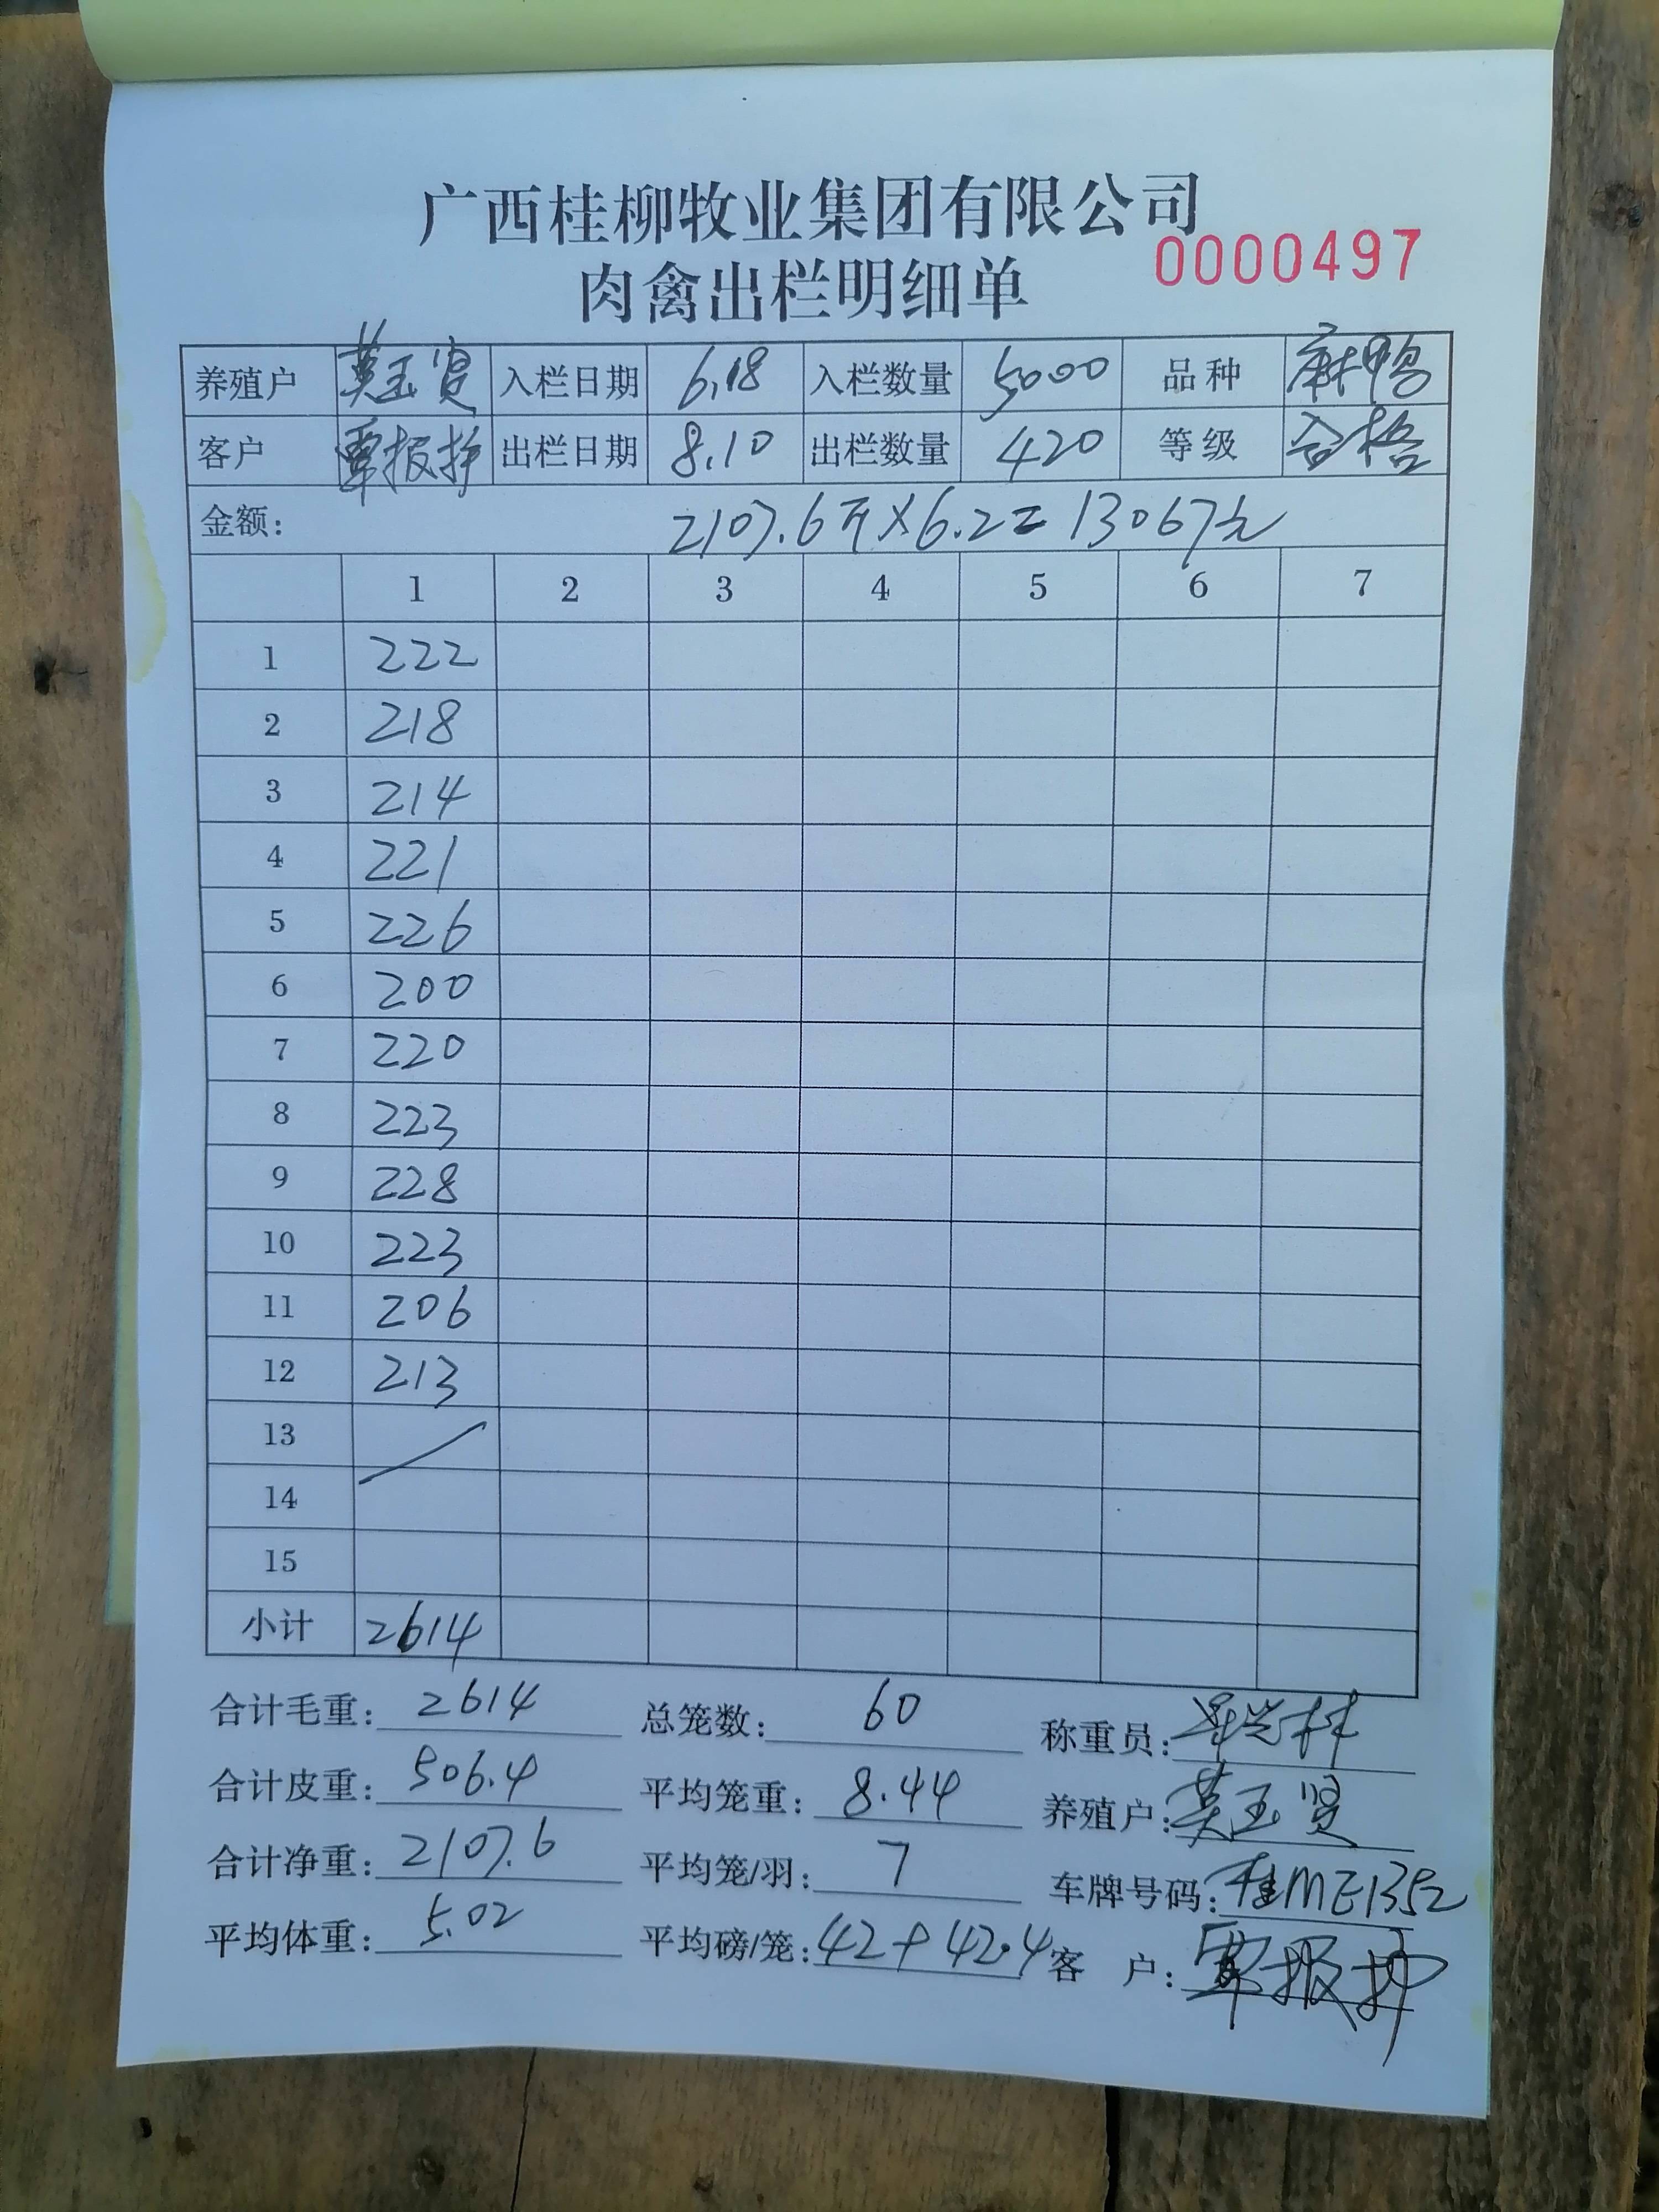 广西桂柳牧业集团有限公司
肉禽出栏明细单 0000497
养殖户 莫玉贤 入栏日期 6.18 入栏数量 5000 品种 麻鸭
客户 覃报 出栏日期 8.10 出栏数量 420 等级 合格
金额: 2107.6斤×6.2=13067元
1 2 3 4 5 6 7
1 222
2 218
3 214
4 221
5 226
6 200
7 220
8 223
9 228
10 223
11 206
12 213
13
14
15
小计 2614
合计毛重: 2614 总笼数: 60 称重员:
合计皮重: 506.4 平均笼重: 8.44 养殖户: 莫玉贤
合计净重: 2107.6 平均笼/羽: 7 车牌号码: 桂ME1352
平均体重: 5.02 平均磅/笼: 42+42.4 客 户: 覃报